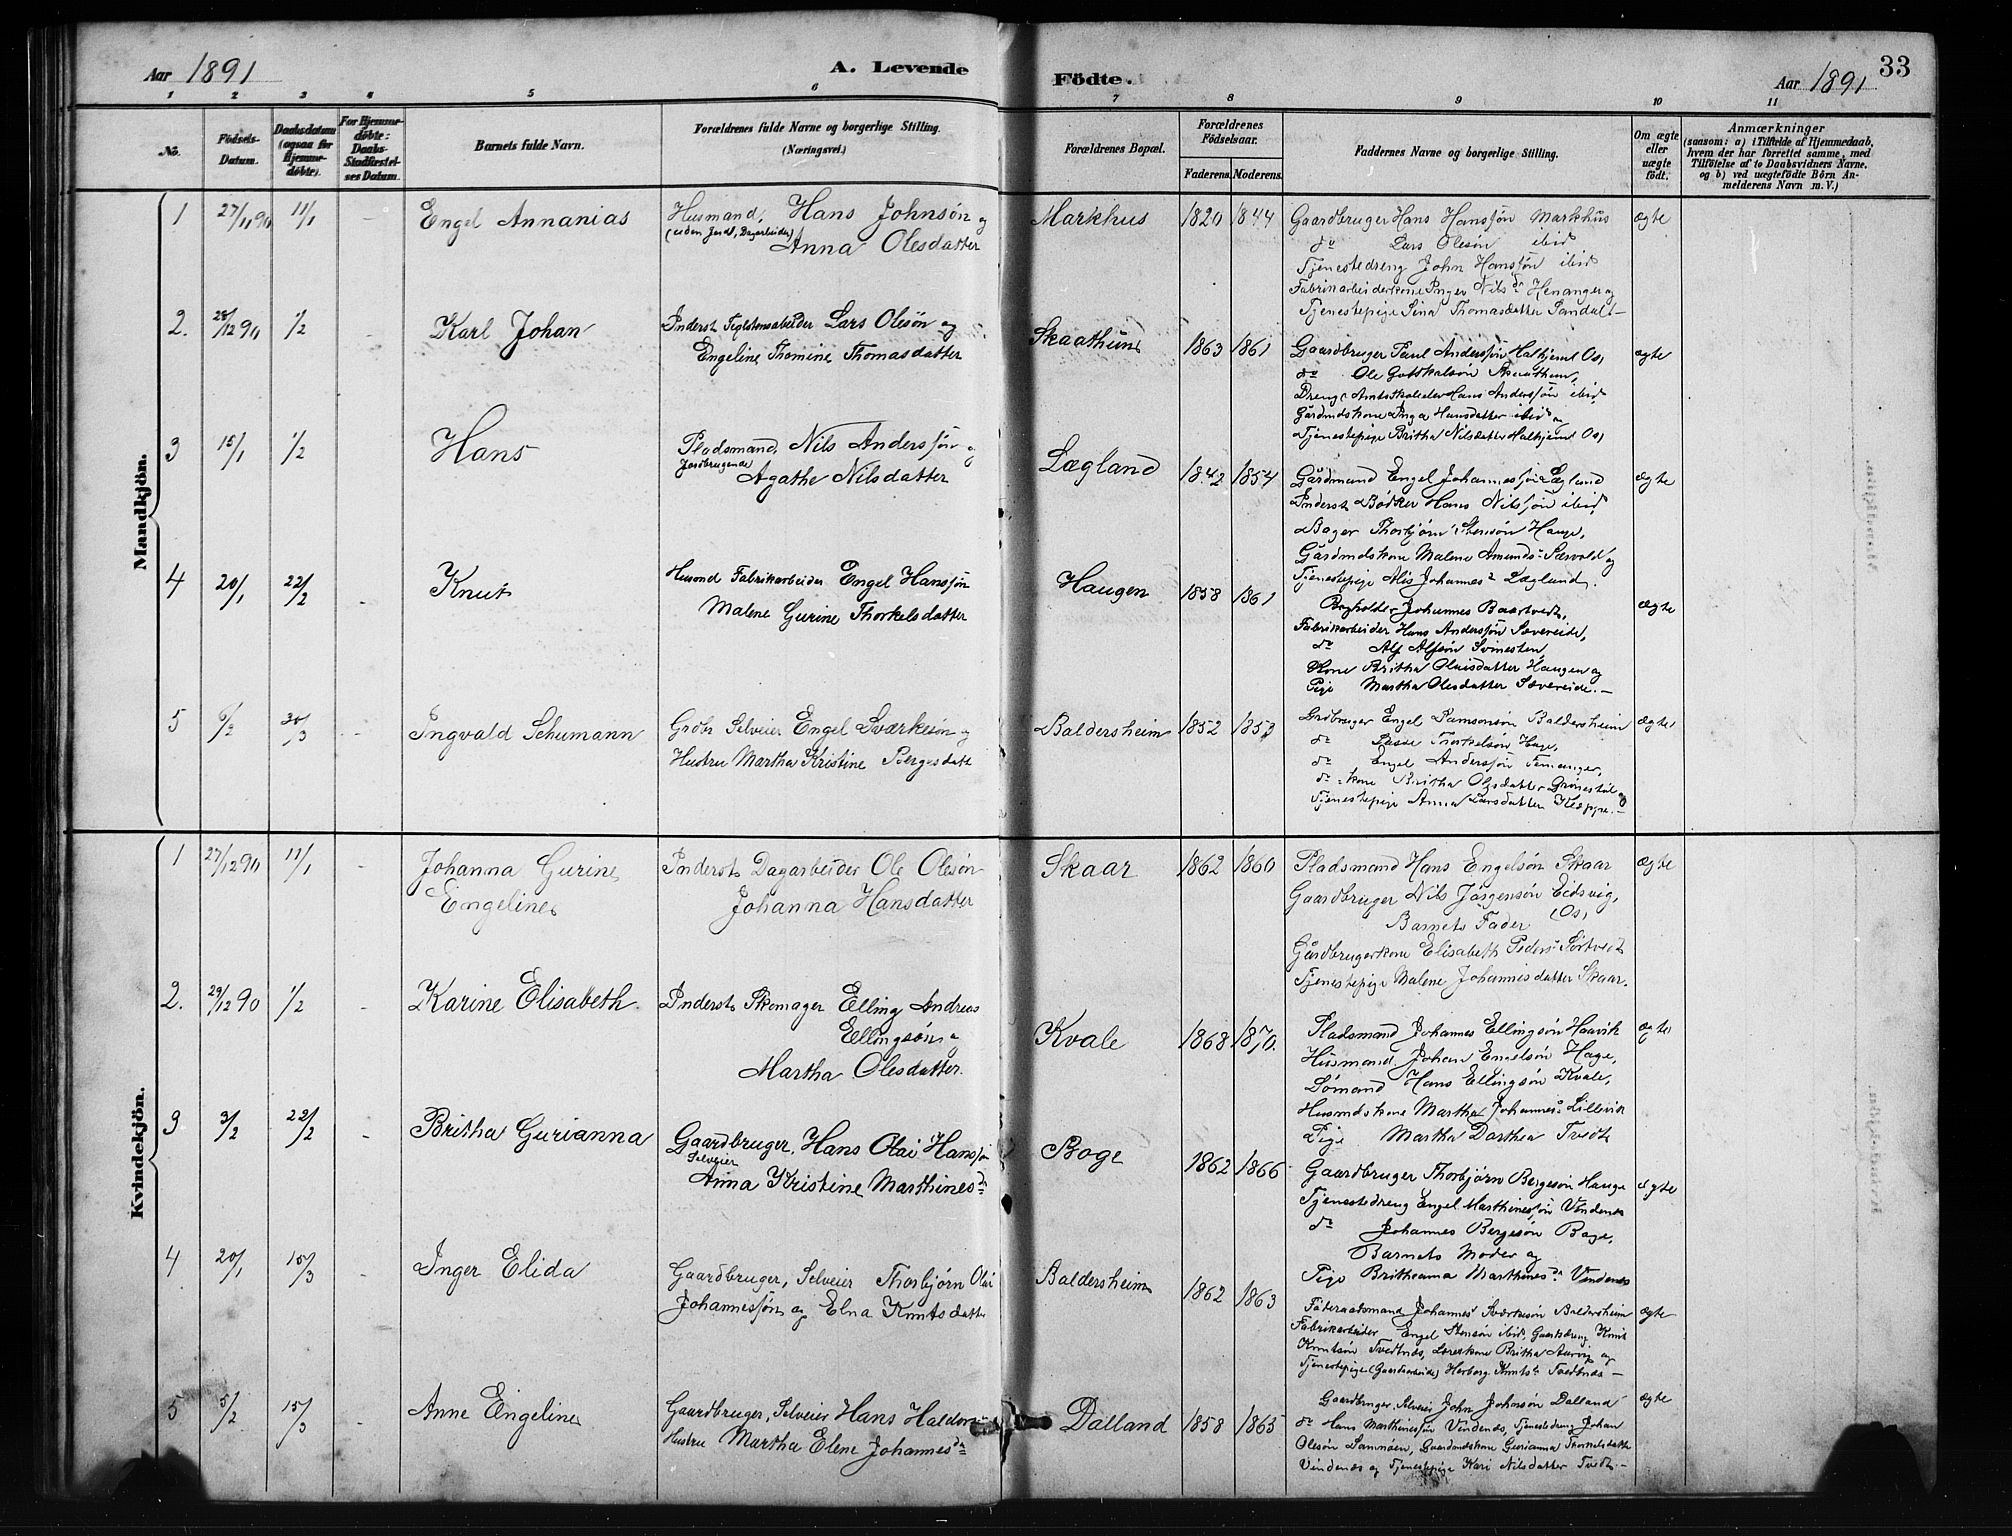 Aar 1891
A. Levende
Födte.
Aar 1891
33
1 2 3 4 5 6 7 8 9 10 11
No.
Födsels-Datum.
Daabsdatum (ogsaa for Hjemmedöbte).
For Hjemmedöbte: Daabs-Stadfæstelses Datum.
Barnets fulde Navn.
Forældrenes fulde Navne og borgerlige Stilling. (Næringsvei.)
Forældrenes Bopæl.
Forældrenes Födselsaar.
Faderens. Moderens.
Faddernes Navne og borgerlige Stilling.
Om ægte eller uægte födt.
Anmærkninger
(saasom: a) i Tilfælde af Hjemmedaab, hvem der har forrettet samme, med Tilföielse af to Daabsvidners Navne. og b) ved uægtefödte Börn Anmelderens Navn m. V.)
Mandkjön.
1 27/11 90 11/1 - Engel Annanias
Husmand, Hans Johnsön og
(uden Jord, Dagarbeider)
Anna Olesdatter
Markhus 1820 1844
Gaardbruger Hans Hanssön Markhus
do Lars Olesön ibid
Tjenestedreng John Hanssön ibid
Fabrikarbeiderkone Inger Nilsdr Henanger og
Tjenestepige Sina Thomasdatter Sandal -
ægte
2. 28/12 90 1/2 - Karl Johan
Inderst Teglstensabeider Lars Olesön og
Engeline Thomine Thomasdatter
Skaathun 1863 1861
Gaardbruger Paul Anderssön Halhjem Os,
do Ole Gottskalsön Skaathun,
Dreng Amtsskoleelev Hans Anderssön ibid,
Gårdmdskone Inga Hansdatter ibid og
Tjenestepige Britha Nilsdatter Halhjem Os,
ægte
3 15/1 1/2 Hans
Pladsmand, Nils Anderssön og
Jordbrugende
Agathe Nilsdatter
Lægland 1842 1854
Gårdmand Engel Johannessön Lægland
Inderst Bödker Hans Nilssön ibid,
Bager Thorbjörn Stensön Hauge,
Gårdmdskone Malene Amunds- Særvold og
Tjenestepige Alis Johannes- Lægland.
ægte
4 20/1 22/2 - Knut
Husmd Fabrikarbeider Engel Hanssön
Malene Gurine Thorkelsdatter
Haugen 1858 1861
Johannes Baartvedt,
Fabrikarbeider Hans Anderssön Sævereide,
do Alf Alfsön Svinesten,
Kone Britha Olaisdatter Haugen og
Pige Martha Olesdatter Sævereide. -
ægte
5 6/2 30/3 - Ingvald Schumann
Grdbr Selveier Engel Sværkesön og
Hustru Martha Kristine Børgesdatt
Baldersheim 1852 1853
Grdbruger Engel Samsonsön Baldersheim
do Thorkelsön Hage,
do Engel Anderssön Femanger,
do kone Britha Olesdatter Grönestöl og
Tjenestepige Anna Larsdatter Kleppe. -
ægte
Kvindekjön.
1 27/12 90 11/1 - Johanna Gurine
Engeline
Inderst Dagarbeider Ole Olesön
Johanna Hansdatter
Skaar 1862 1860
Pladsmand Hans Engelsön Skaar
Gaardbruger Nils Jörgensön Eidsvig,
Barnets Fader (Os,
Gårdbrugerkone Elisabeth Peders- Sörtveit
Tjenestepige Malene Johannisdatter Skaar.
ægte
2. 29/12 90 1/2 - Karine Elisabeth
Inderst Skomager Elling Andreas
Ellingsön og
Martha Olesdatter.
Kvale 1868 1870.
Pladsmand Johannes Ellingsön Haavik
Husmand Johan Engelsön Hage,
Sömand Hans Ellingsön Kvale,
Husmdskone Martha Johannes- Lillevik
Pige Martha Dorthea Tvedt
ægte
3 3/2 22/2 - Britha Gurianna
Gaardbruger, Hans Olai Hanssön
Selveier
Anna Kristine Marthinesdr
Boge 1862 1866
Gaardbruger Thorbjörn Bergesön Hauge
Tjenestedreng Engel Marthinessön Vindenes
do Johannes Bergesön Boge,
Barnets Moder og
Pige Britheanna Marthinesdr Vindenes
ægte
4 20/1 15/3 - Inger Elida
Gaardbruger, Selveier Thorbjörn Olai
Johannessön og Elna Knutsdatter
Baldersheim 1862 1863
Johannes Sværkesön Baldersheim
Fabrikarbeider Engel Stensön ibid, Gaardsdreng Knut
Knutsön Tvedtnæs, Britha Aarvig og
Tjenestepige (Gaardarbeide) Herborg Knuts- Tvedtnæs -
ægte
5 5/2 15/3 - Anne Engeline
Gaardbruger, Selveier Hans Haldorsön
Hustru Martha Elene Johannesdr
Dalland 1858 1865
Gaardbruger, Selveier John Johnsön Dalland
do Hans Marthinessön Vindenes, Tjenestedreng Johan
Olesön Samnöen, Gaardmdskone Gurianna Thorkelsdatter
Vindenes og Tjenestepige Kari Nilsdatter Tvedt -
ægte